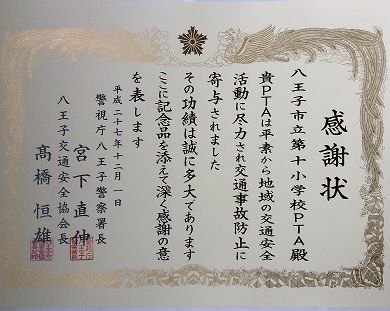 感謝状
八王子市立第十小学校PTA殿
貴PTAは平素から地域の交通安全
活動に尽力され交通事故防止に
寄与されました
その功績は誠に多大であります
ここに記念品を添えて深く感謝の意
を表します
平成二十七年十二月一日
警視庁八王子警察署長
宮下直伸
八王子交通安全協会長
髙橋恒雄